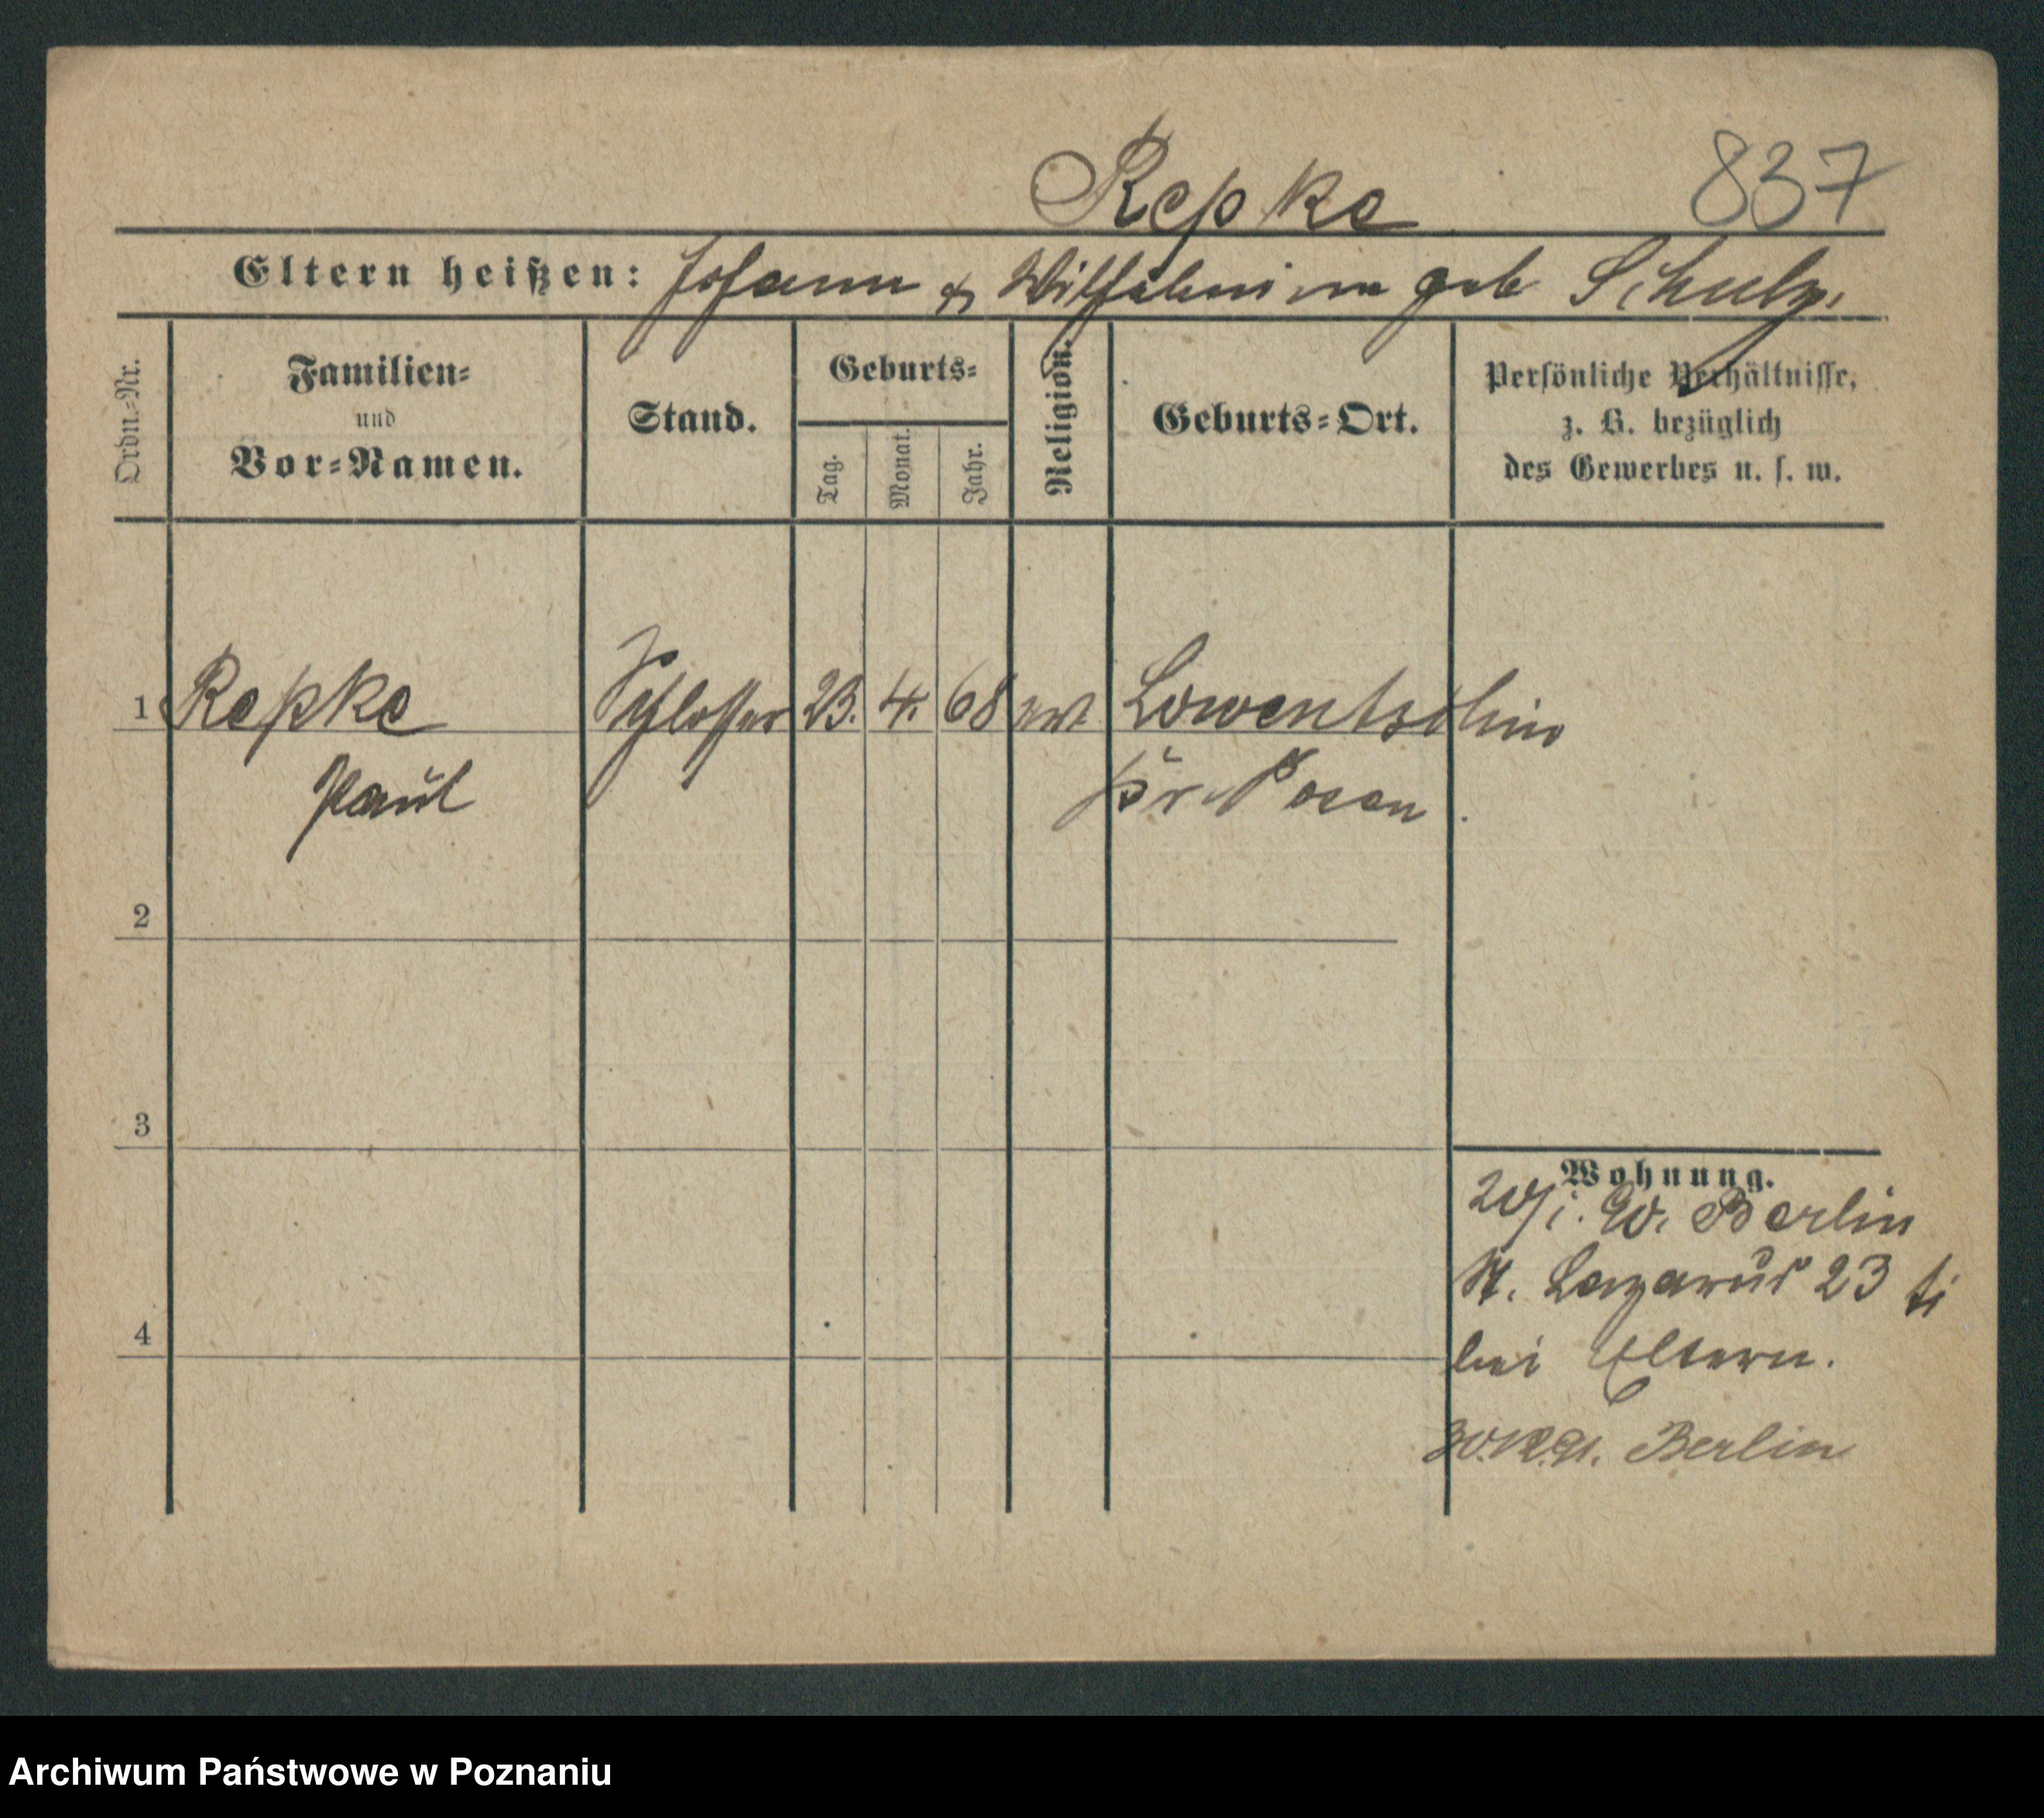 Repke 837
Eltern heißen: Johann & Wilhelmine geb Schulz.
Ordn.-Nr.
Familien-
und
Vor-Namen.
Stand.
Geburts-
Tag.
Monat.
Jahr.
Religion.
Geburts-Ort.
Persönliche Verhältnisse,
z. B. bezüglich
des Gewerbes u. s. w.
1 Repke Schlosser 23. 4. 68 ev. Lowentschin
Paul Kr Posen.
2
3
4
Wohnung.
Berlin
St. Lazarus 23
bei Eltern.
Berlin
Archiwum Państwowe w Poznaniu